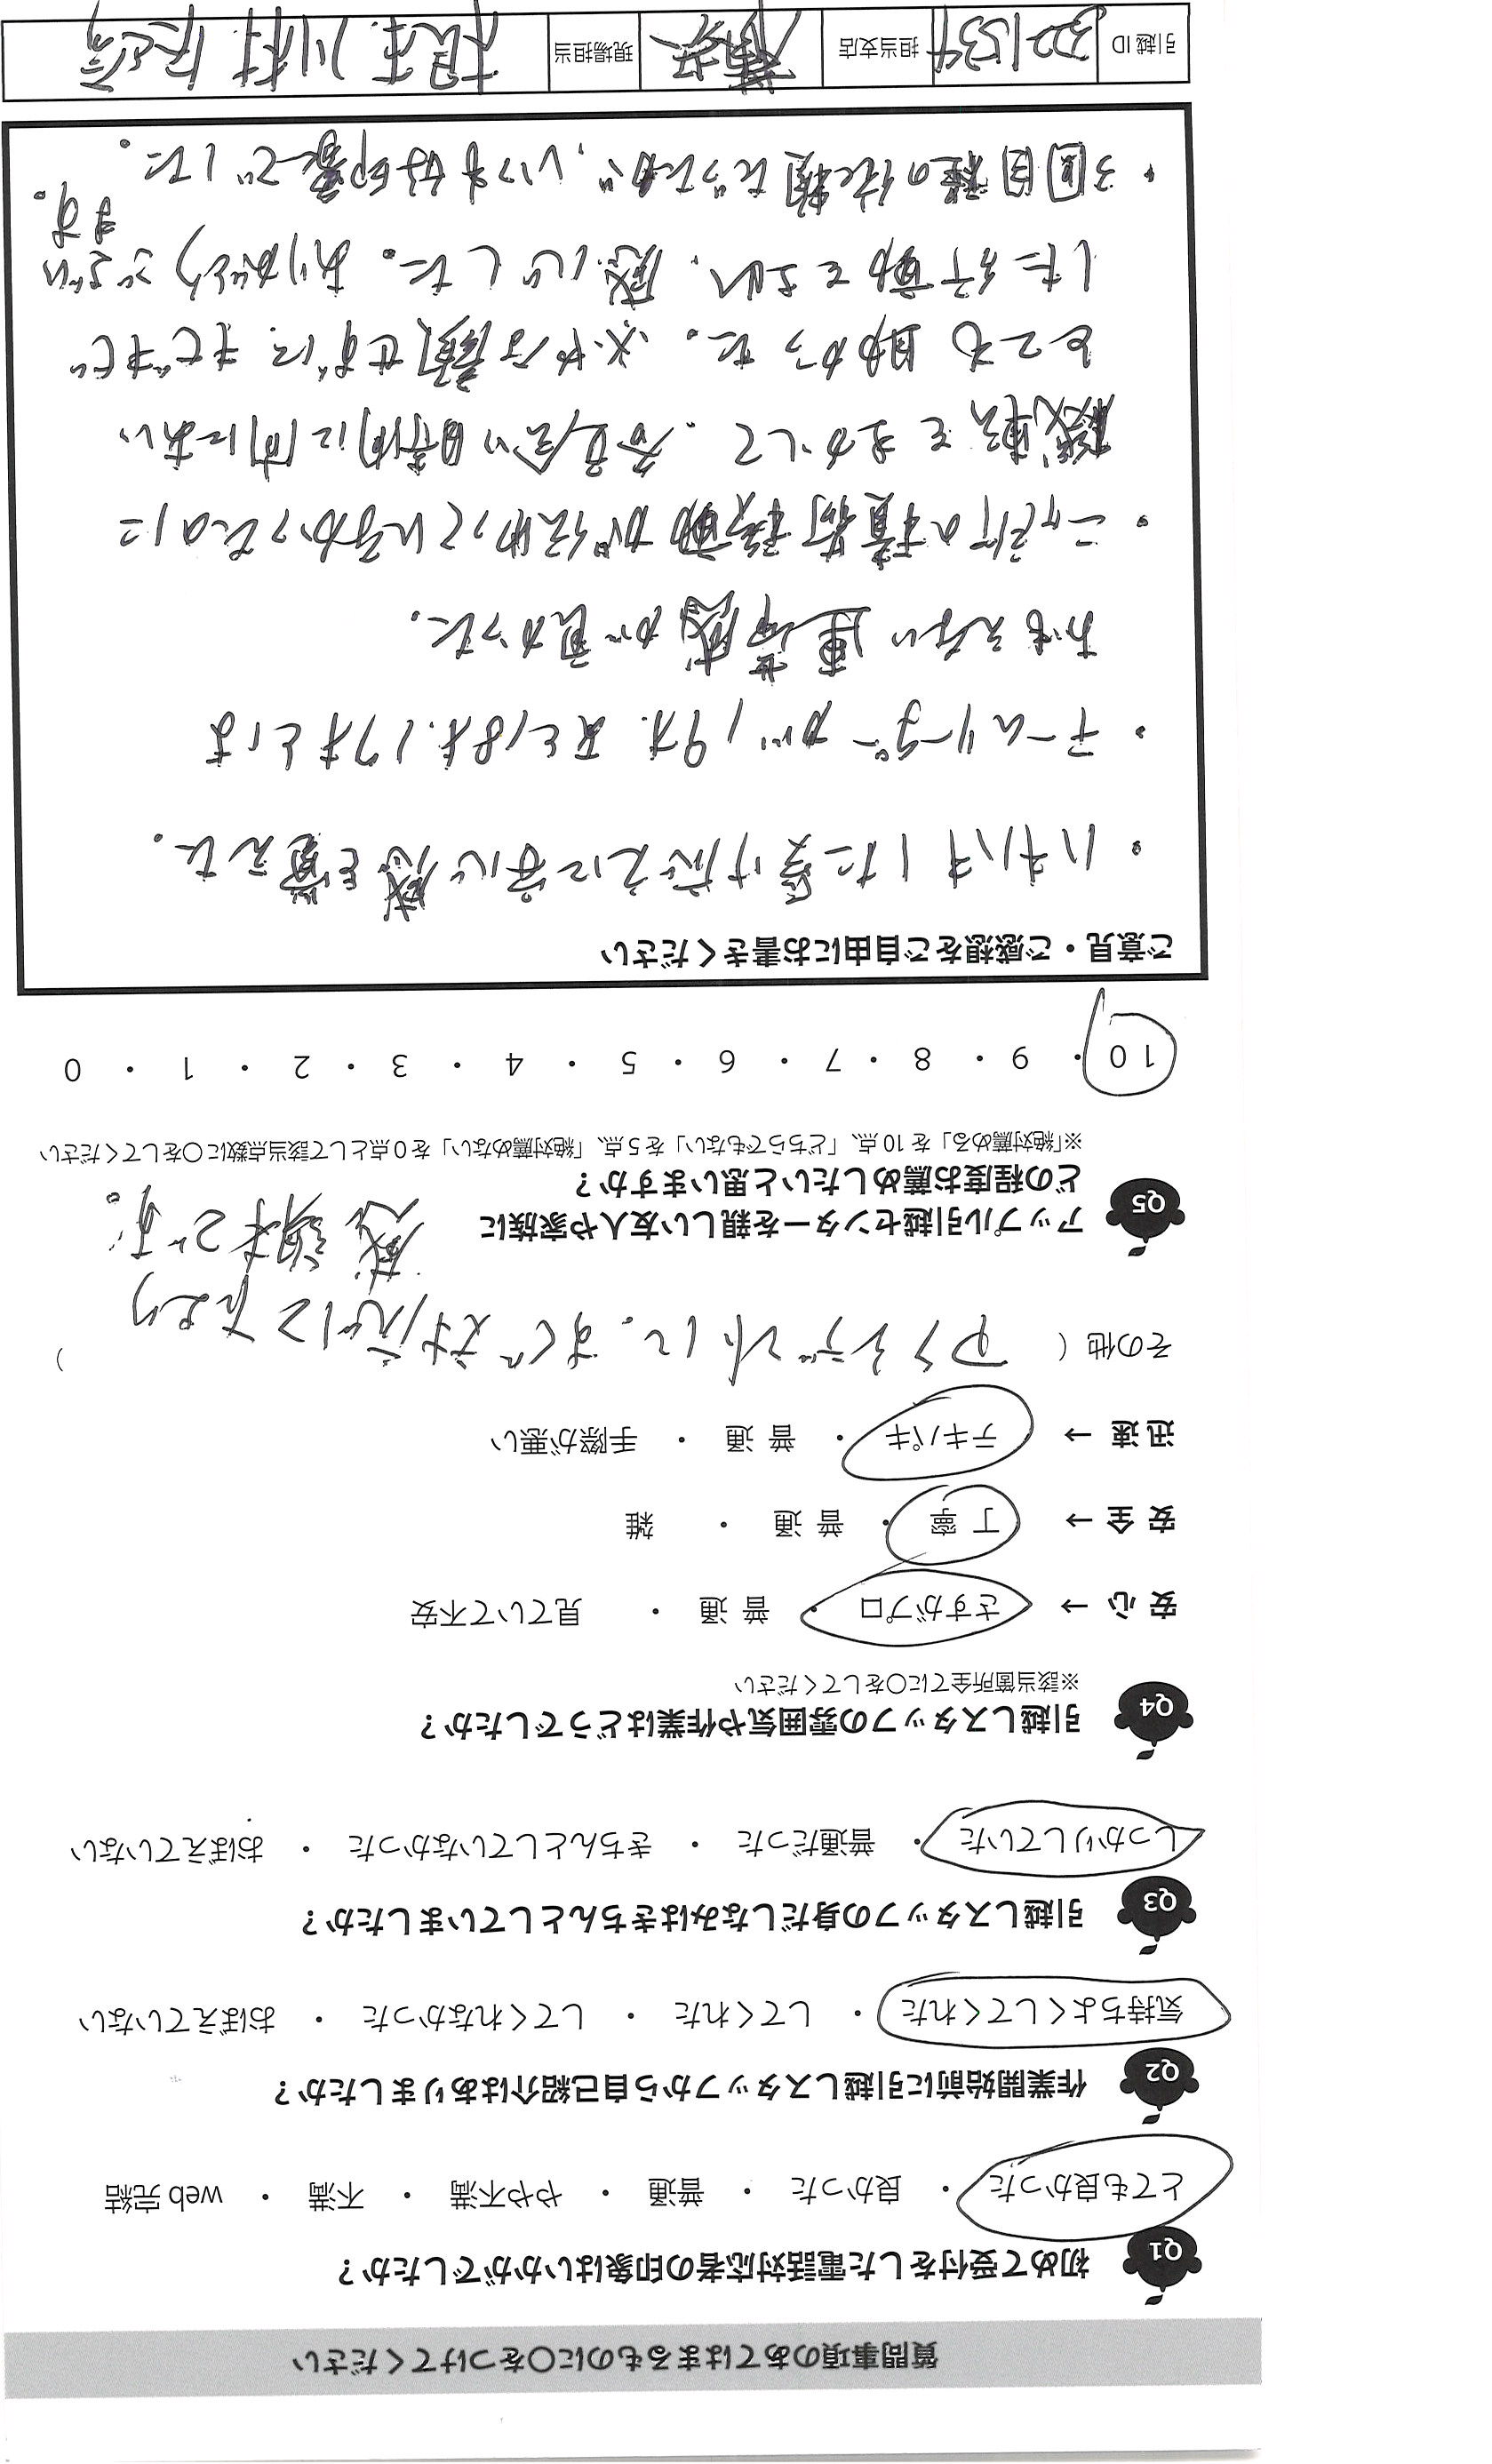 質問事項のあてはまるものに〇をつけてください
Q1 初めて受付をした電話対応者の印象はいかがでしたか？
とても良かった ・ 良かった ・ 普通 ・ やや不満 ・ 不満 ・ web 完結
Q2 作業開始前に引越しスタッフから自己紹介はありましたか？
気持ちよくしてくれた ・ してくれた ・ してくれなかった ・ おぼえていない
Q3 引越しスタッフの身だしなみはきちんとしていましたか？
しっかりしていた ・ 普通だった ・ きちんとしていなかった ・ おぼえていない
Q4 引越しスタッフの雰囲気や作業はどうでしたか？
※該当箇所全てに〇をしてください
安 心 → さすがプロ ・ 普 通 ・ 見ていて不安
安 全 → 丁 寧 ・ 普 通 ・ 雑
迅 速 → テキパキ ・ 普 通 ・ 手際が悪い
その他（ アクシデントに、すぐ対応して下さり ）
感謝です。
Q5 アップル引越センターを親しい友人や家族に
どの程度お薦めしたいと思いますか？
※「絶対薦める」を 10 点、「どちらでもない」を 5 点、「絶対薦めない」を 0 点として該当点数に〇をしてください
10 ・ 9 ・ 8 ・ 7 ・ 6 ・ 5 ・ 4 ・ 3 ・ 2 ・ 1 ・ 0
ご意見・ご感想をご自由にお書きください
・ハキハキした受け応えに安心感を覚えた。
・チームリーダーが19才、あと18才、17才とは
おもえない連帯感が良かった。
・二ヶ所の積荷移動が伝わっていなかったのに
機転をきかして、立会い時間に間にあい
とても助かった。いやな顔せずに、キビキビ
した行動をとり、感心した。ありがとうござい
ます。
・3回目程の依頼だったが、いつも好印象でした。
引越 ID 担当支店 現場担当